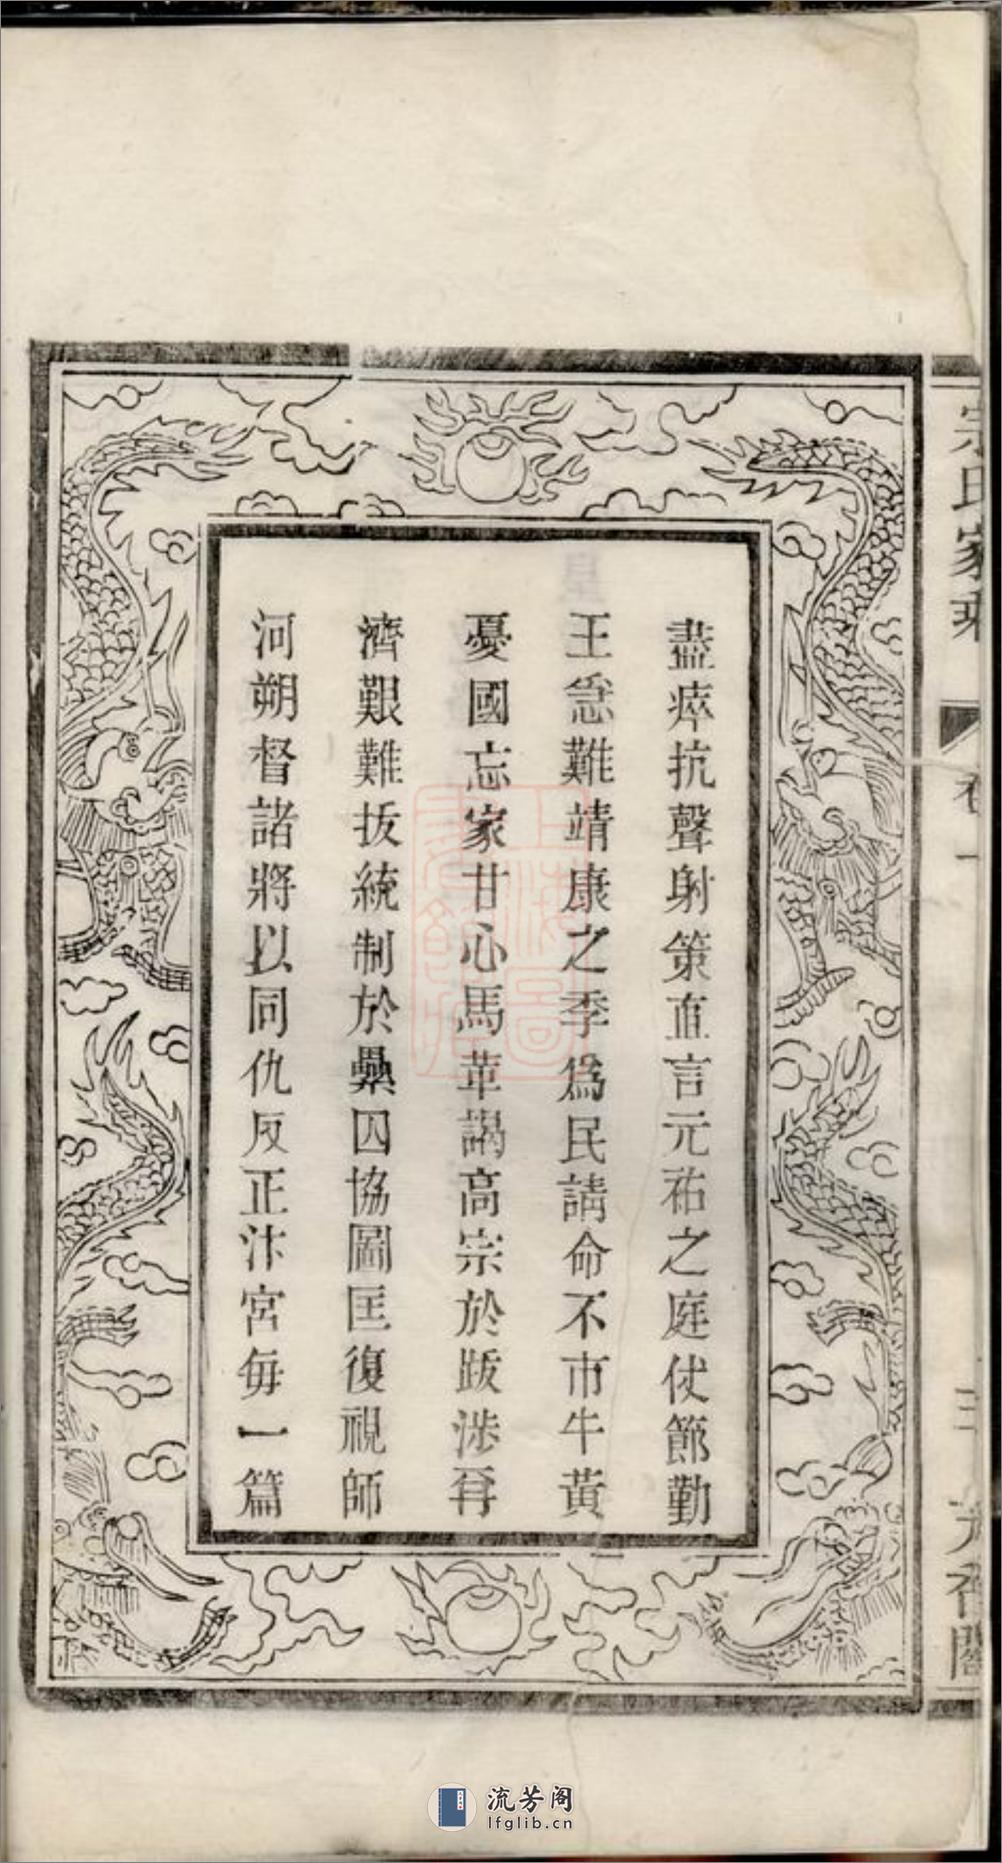 宗氏家乘
卷一
三
盡瘁抗聲射策直言元祐之庭仗節勤
王急難靖康之季爲民請命不市牛黃
憂國忘家甘心馬革謁高宗於跋涉再
濟艱難拔統制於纍囚協圖匡復視師
河朔督諸將以同仇反正汴宮每一篇
上海圖
書館藏
流芳阁
lfglib.cn